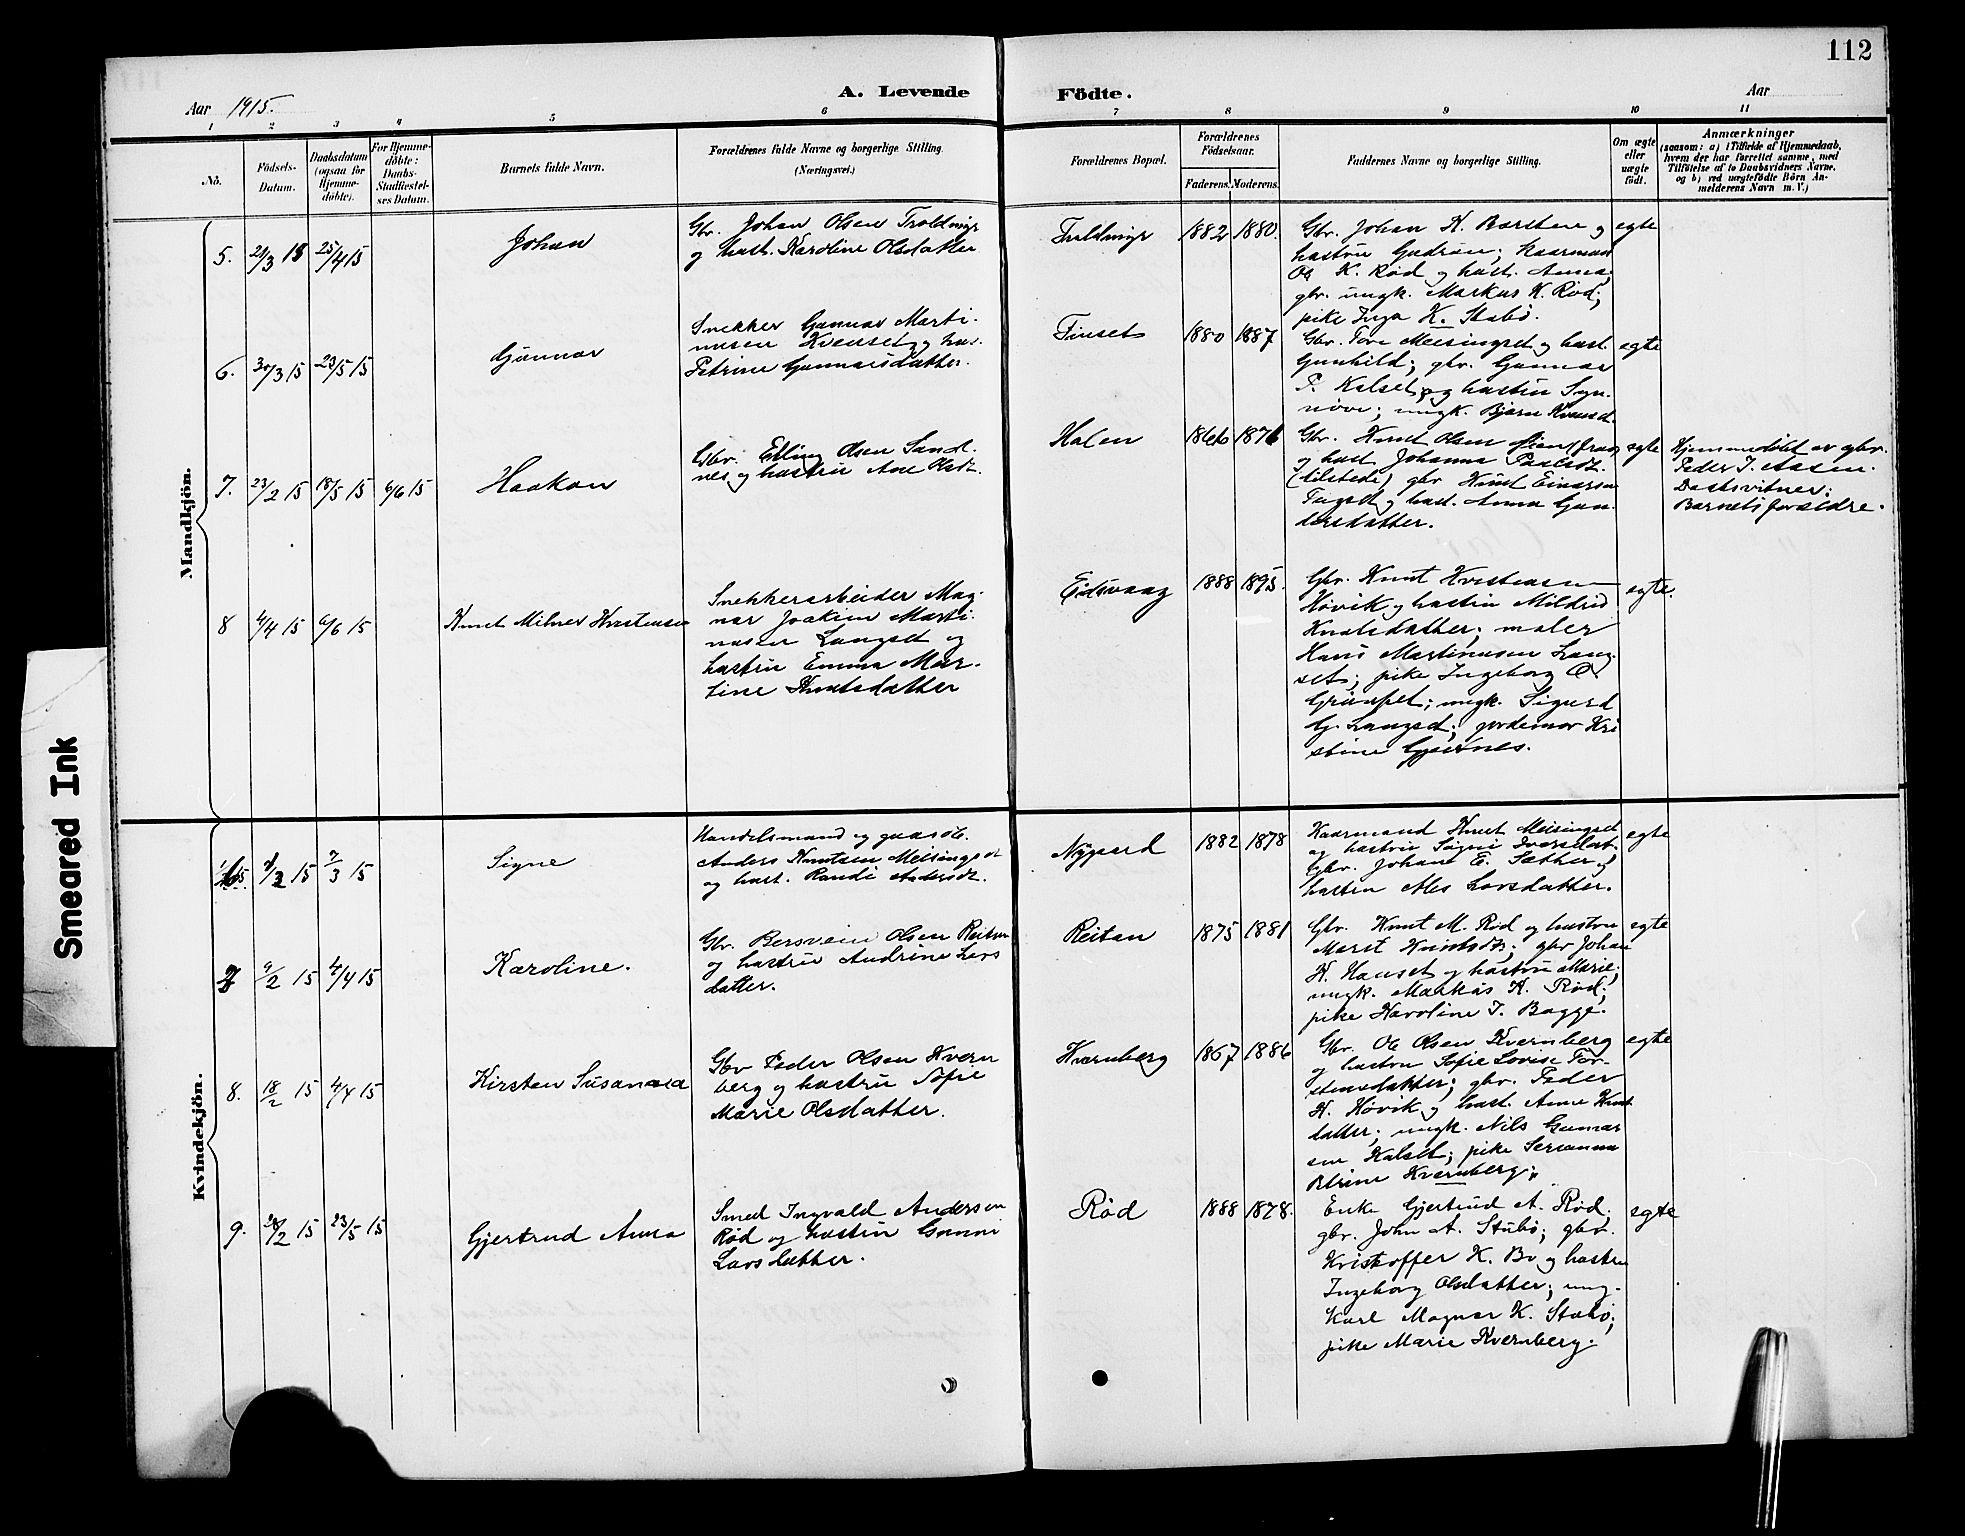 112
Aar 1915.
A. Levende Födte.
Aar
1 2 3 4 5 6 7 8 9 10 11
No.
Födsels-Datum.
Daabsdatum (ogsaa for Hjemmedöbte).
For Hjemmedöbte: Daabs-Stadfæstelses Datum.
Barnets fulde Navn.
Forældrenes fulde Navne og borgerlige Stilling. (Næringsvei.)
Forældrenes Bopæl.
Forældrenes Födselsaar.
Faderens. Moderens.
Faddernes Navne og borgerlige Stilling.
Om ægte eller uægte födt.
Anmærkninger
(saasom: a) i Tilfælde af Hjemmedaab,
hvem der har forrettet samme, med
Tilföielse af to Daabsvidners Navne,
og b) ved uægtefödte Börn Anmelderens Navn m. V.)
Mandkjön.
5. 21/3 15 25/4 15 Johan
Gbr. Johan Olsen Troldmyr
og hust. Karoline Olsdatter
Troldmyr 1882 1880.
Gbr. Johan K. Barsten og
hustru Gudrun; kaarmand
Ole K. Rød og hust. Anna;
gbr. ungk. Markus K. Rød;
pike Inga K. Stubø.
egte
6. 30/3 15 23/5 15 Gunnar
Snekker Gunnar Marti-
nusen Kvenset og hus.
Petrine Gunnarsdatter.
Tinset 1880 1887
Gbr. Tore Meisingset og hust.
Gunhild; gbr. Gunnar
P. Kalset og hustru Syn-
nøve; ungk. Bjørn Kvenset.
egte
7. 23/2 15 18/5 15 6/6 15 Haakon
Gbr. Elling Olsen Sand-
nes og hustru Ane Olsdt.
Holen 1876
Gbr. Knut Olsen
og hust. Johanna Paulsdt.
(tilstede) gbr Knut Einarsen
Tingset og hust. Anna Gun-
dersdatter.
egte
Hjemmedøbt av gbr.
Peder I. Aasen.
Daabsvitner:
Barnets forældre.
8 4/4 15 6/6 15 Knut Milner Kristensen
Snekkerarbeider Mag-
nar Joakim Marti-
nusen Langset og
hustru Emma Mar-
tine Knutsdatter
Eidsvaag 1888 1895.
Gbr. Knut Kristensen
Høvik og hustru Mildrid
Knutsdatter; maler
Hans Martinusen Lang-
set; pike Ingeborg O
Grimset; ungk. Sigurd
G. Langset; jordemor Kri
stine Gjernes.
egte.
Kvindekjön.
15 7/3 15 Signe
Handelsmand og gaardb.
Anders Knutsen Meisingset
og hust. Randi Andersdt.
Nygaard 1882 1878
Kaarmand Knut Meisingset
og hustru Signi Iversdat.
Gbr. Johan E. Sæther og
hustru Mes Larsdatter.
egte
7 9/2 15 4/4 15 Karoline.
Gbr. Bersvein Olsen Reitan
og hustru Andrine Lars
datter.
Reitan 1875 1881
Gbr. Knut M. Rød og hustru
Marit Knutsdt; gbr Johan
K. Hanset og hustru Marie;
ungk. Markus K. Rød;
pike Karoline J. Bagge.
egte
8. 18/2 15 4/4 15 Kirsten Susanna
Gbr Peder Olsen Kvern
berg og hustru Sofie
Marie Olsdatter.
Kvernberg 1867 1886
Gbr. Ole Olsen Kvernberg
og hustru Sofie Lovise Tor-
stensdatter; gbr. Peder
K. Høvik og hust. Anne Knut
datter; ungk. Nils Gunnar
sen Kalset; pike Serianna
Petrine Kvernberg;
egte
9. 28/2 15 23/5 15 Gjertrud Anna
Smed Ingvald Andersen
Rød og hustru Gunni
Larsdatter.
Rød 1888 1878.
Enke Gjertrud A. Rød.
gbr. John A. Stubø; gbr.
Kristoffer K. Bø og hustru
Ingeborg Olsdatter; ung.
Karl Magnar K. Stubø;
pike Marie Kvernberg.
egte
Smeared Ink